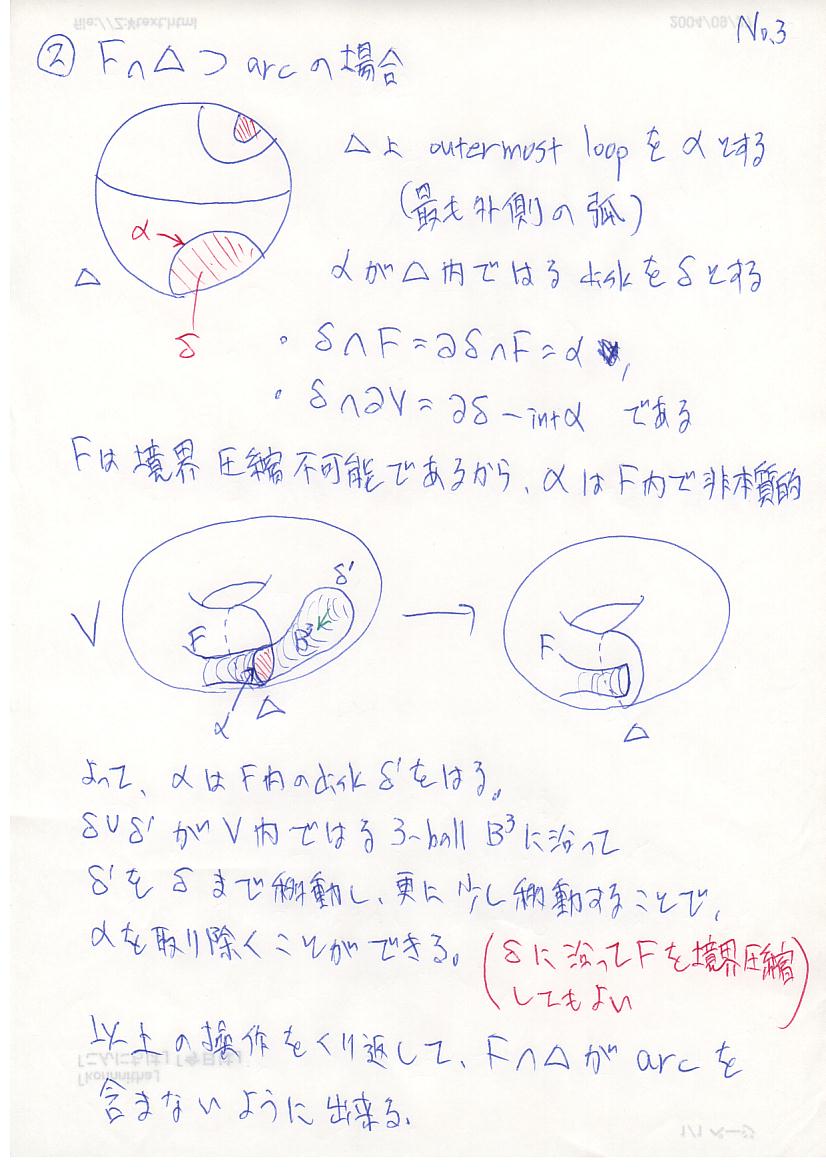 No.3
② F∩△ ⊃ arc の場合
△上 outermost loop を α とする
(最も外側の弧)
α
α が △ 内ではる disk を δ とする
△
δ
・ δ∩F = ∂δ∩F = α ,
・ δ∩∂V = ∂δ - int α である
Fは境界圧縮不可能であるから、αはF内で非本質的
δ'
V F B³ F
α △ △
よって、αはF内のdisk δ'をはる。
δ∪δ' が V内ではる 3-ball B³ に沿って
δ'を δ まで移動し、更に少し移動することで、
αを取り除くことができる。
(δに沿ってFを境界圧縮
してもよい)
以上の操作をくり返して、F∩△が arc を
含まないように出来る.